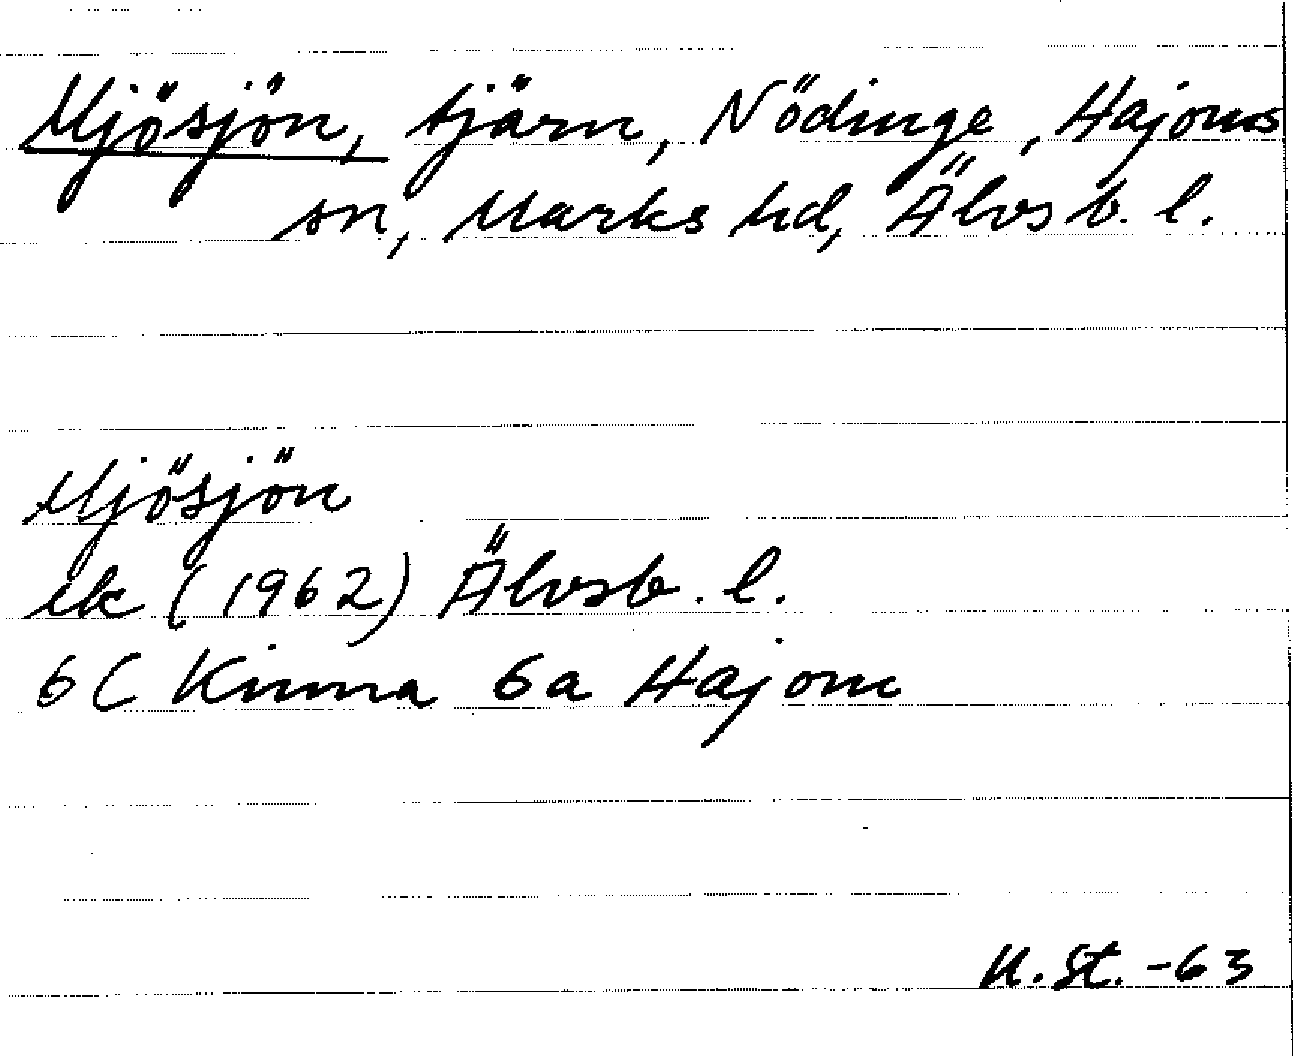 Mjösjön, tjärn, Nödinge, Hajoms
sn, Marks hd, Älvsb. l.
Mjösjön
ek (1962) Älvsb. l.
6C Kinna 6a Hajom
U. St. -63